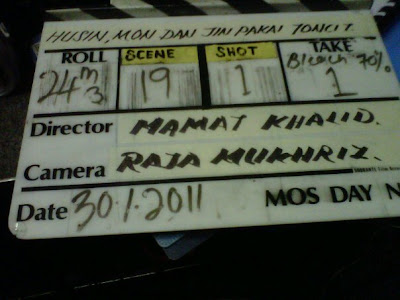 HUSIN, MON DAN JIN PAKAI TONCIT.
ROLL SCENE SHOT TAKE
24 m3 19 1 Bleach 70% 1
Director MAMAT KHALID.
Camera RAJA MUKHRIZ.
Date 30.1.2011 MOS DAY N